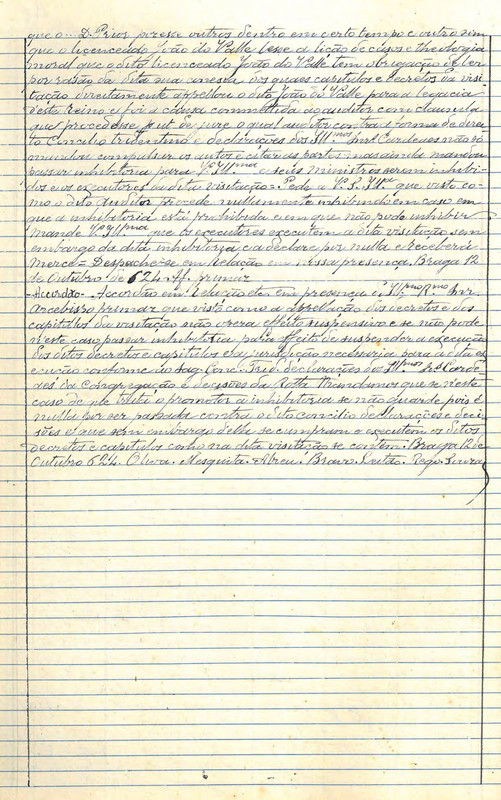 que o... D. Prior pozesse outros dentro em certo tempo e outro sim
que o licenceado João do Valle lesse a lição de casos e theologia
moral que o dito licenceado João do Valle tem obrigação de ler
por razão da dita sua conesia dos quaes capitulos e decretos da visi
tação direitamente appellou o dito João do Valle para a legacia
deste reino e foi a causa committida ao auditor com clausula
que procedesse de jure o qual auditor contra a forma de direi
to concilio tridentino e declarações dos Ill.mos Snr.s Cardeaes não só
mandou compulsar os autos e citar as partes mas ainda mandou
passar inhibitoria para V. Ill.ma e seus ministros serem inhibi
dos e os executores da dita visitação = Pede a V. S. Ill. que visto co
mo o dito Auditor procede nullamente inhibindo em caso em
que a inhibitoria está prohibida e em que não pode inhibir
mande V. S. Ill.ma que os executores executem a dita visitação sem
embargo da dita inhibitoria e a declare por nulla e Receberá
Mercê = Despache-se em Relação em nossa presença, Braga 12
de Outubro de 624. Aff. primaz
- Acordão - Acordão em Relação etc em presença d' Ill.mo Rmo Snr
Arcebispo primaz que visto como a appelação dos decretos e dos
capitulos da visitação não opera effeito suspensivo e se não pode
neste caso passar inhibitoria para effeito de suspender a execução
dos ditos decretos e capitulos e a jurisdição necessaria para a dita ex
ecução conforme ao Sag. Conc. Trid. declarações dos Ill.mos Snr.s Carde
aes da Congregação e decisões da Rotta. Mandamos que se neste
caso de que trata o promotor a inhibitoria se não guarde pois é
nulla por ser passada contra o dito concilio declarações e deci
sões e que sem embargo d'ella se cumpram e executem os ditos
decretos e capitulos como na dita visitação se contem. Braga 12 de
Outubro 624. Oliva. Mesquita. Abreu. Bravo. Leitão. Rego.